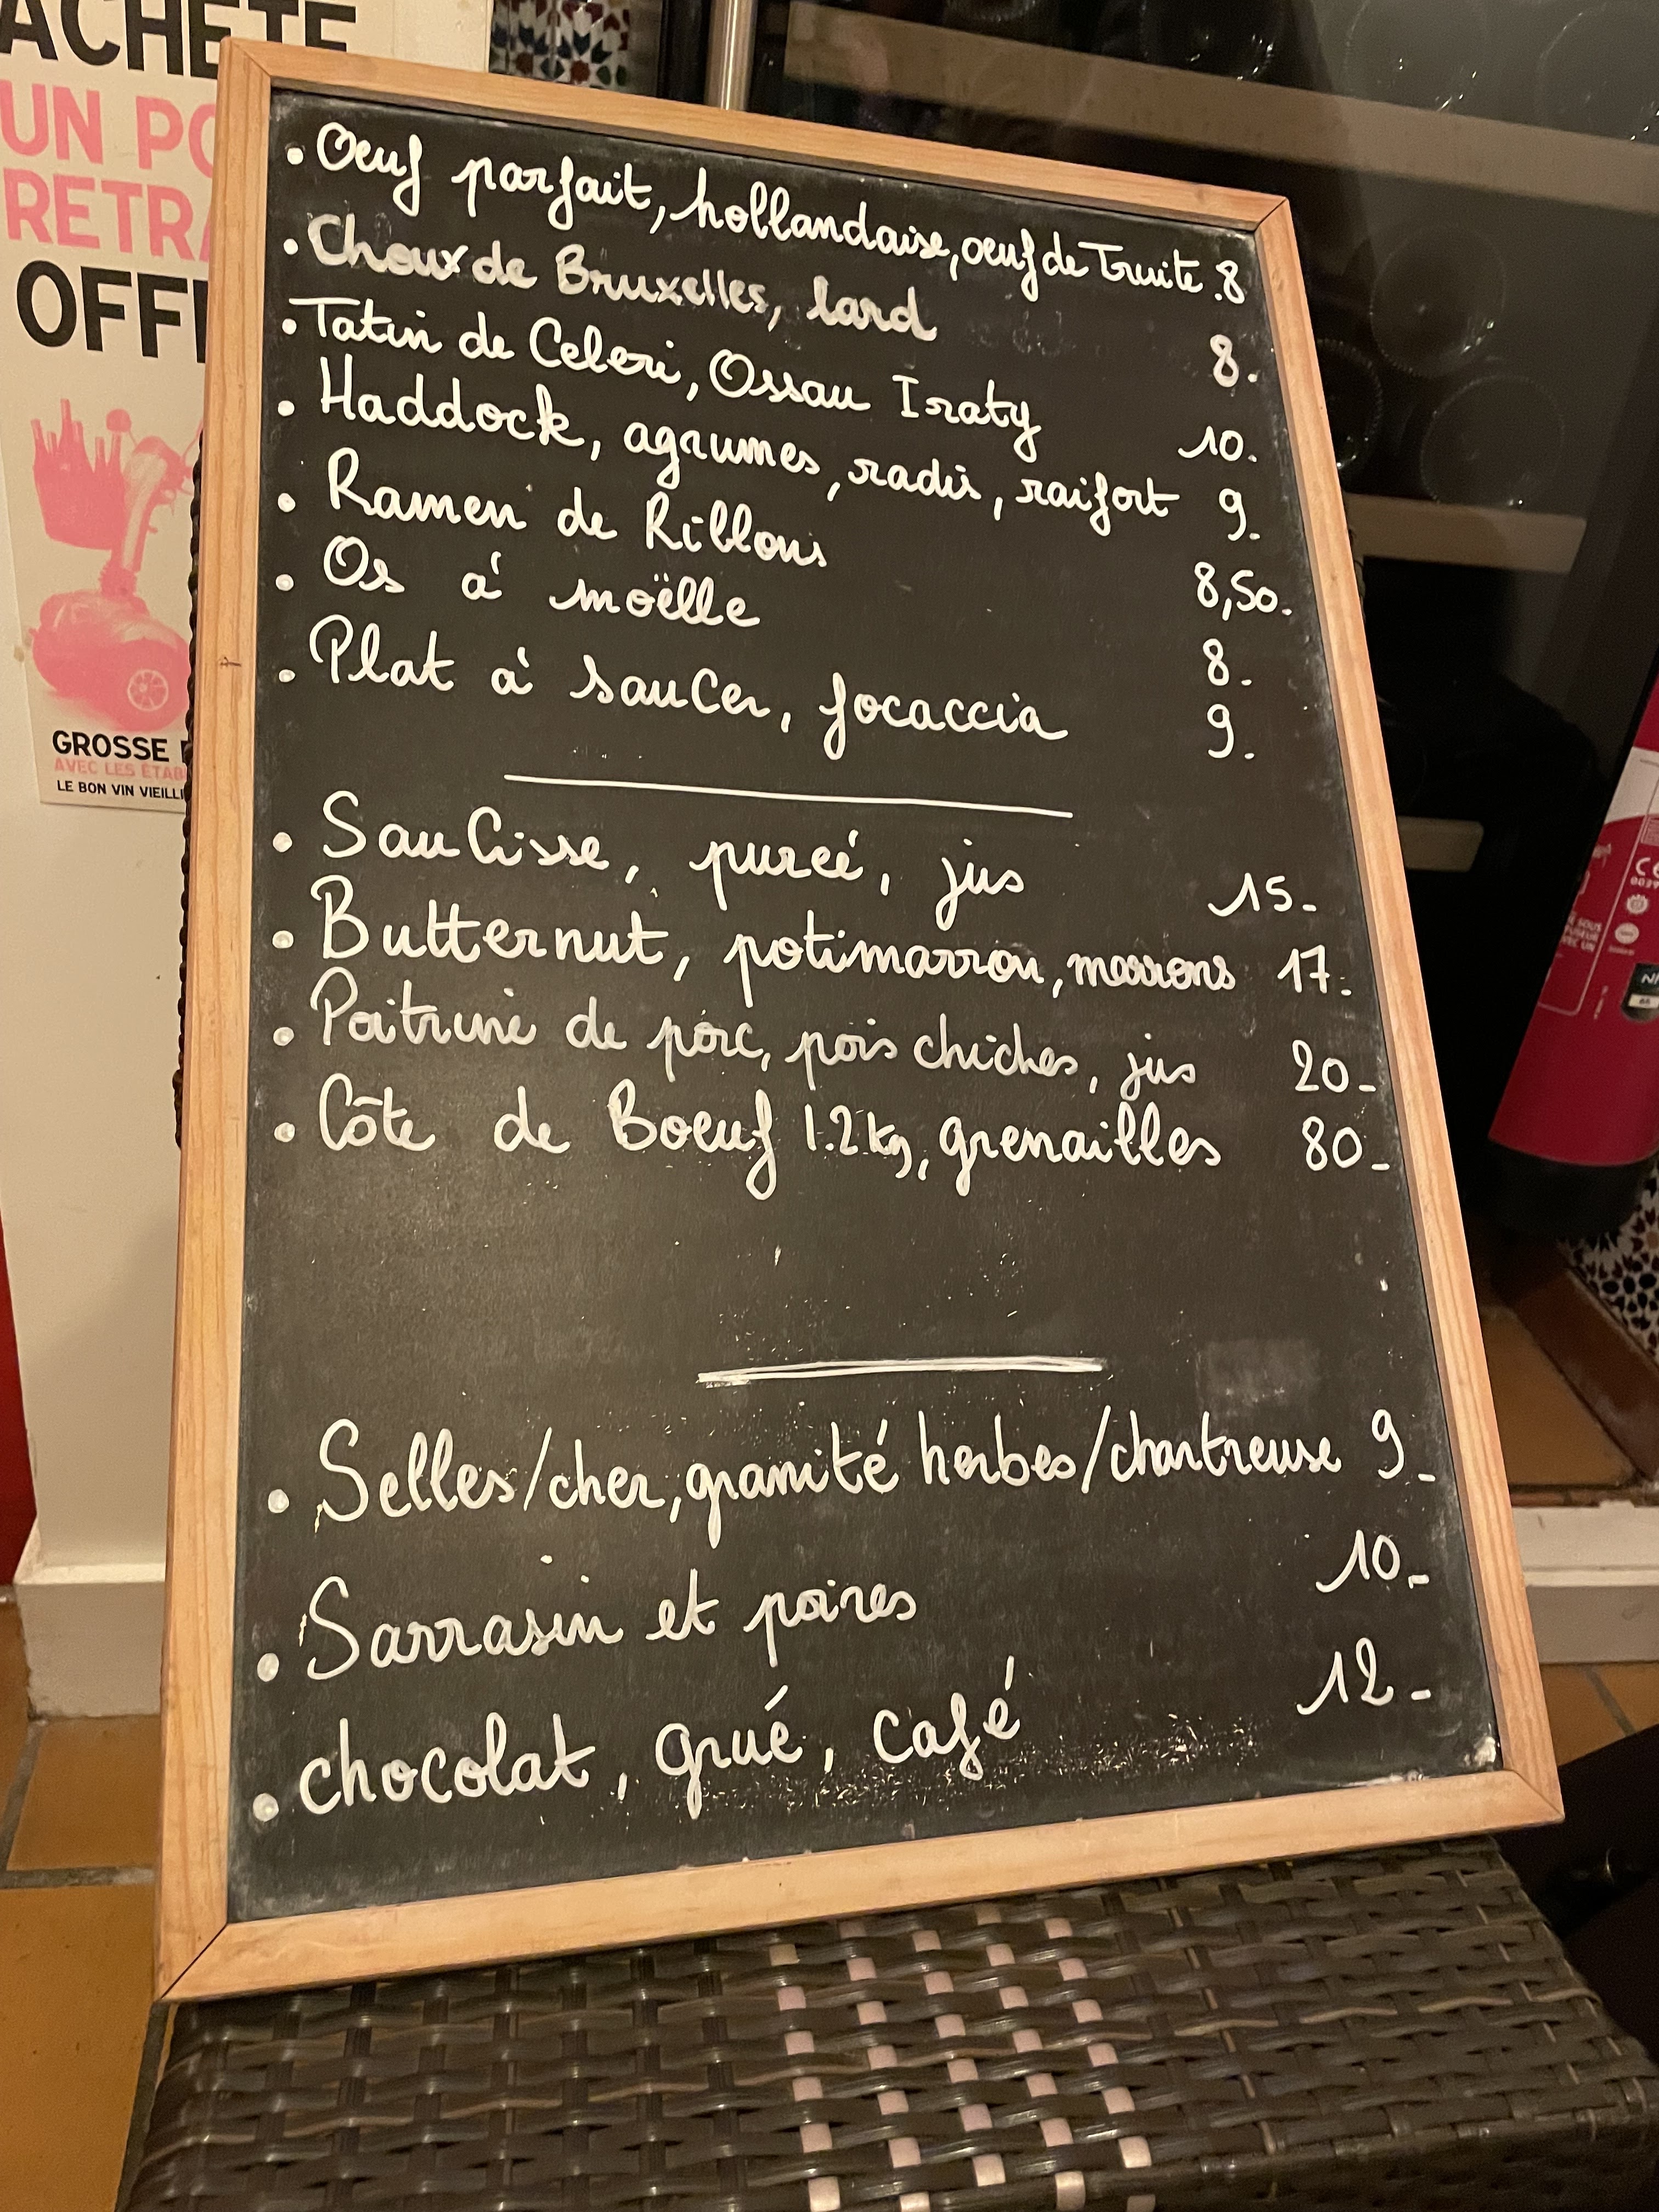 ACHÈTE
UN PO
RETRA
OFFE
GROSSE
AVEC LES ÉTAB
LE BON VIN VIEILLI
. Oeuf parfait, hollandaise, oeuf de Truite. 8
. Choux de Bruxelles, lard 8.
. Tatin de Celeri, Ossau Iraty 10.
. Haddock, agrumes, radis, raifort 9.
. Ramen de Rillons 8,50.
. Os à moëlle 8.
. Plat à saucer, focaccia 9.
. Saucisse, pureé, jus 15-
. Butternut, potimarron, marrons 17.
. Poitrine de porc, pois chiches, jus 20-
. Côte de Boeuf 1.2kg, grenailles 80-
. Selles/cher, granité herbes/chartreuse 9-
. Sarrasin et poires 10-
. chocolat, grué, café 12-
CE